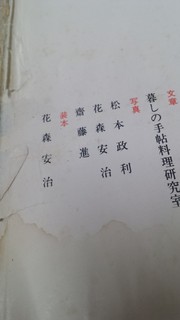 文章
暮しの手帖料理研究室
写真
松本政利
花森安治
齋藤進
装本
花森安治